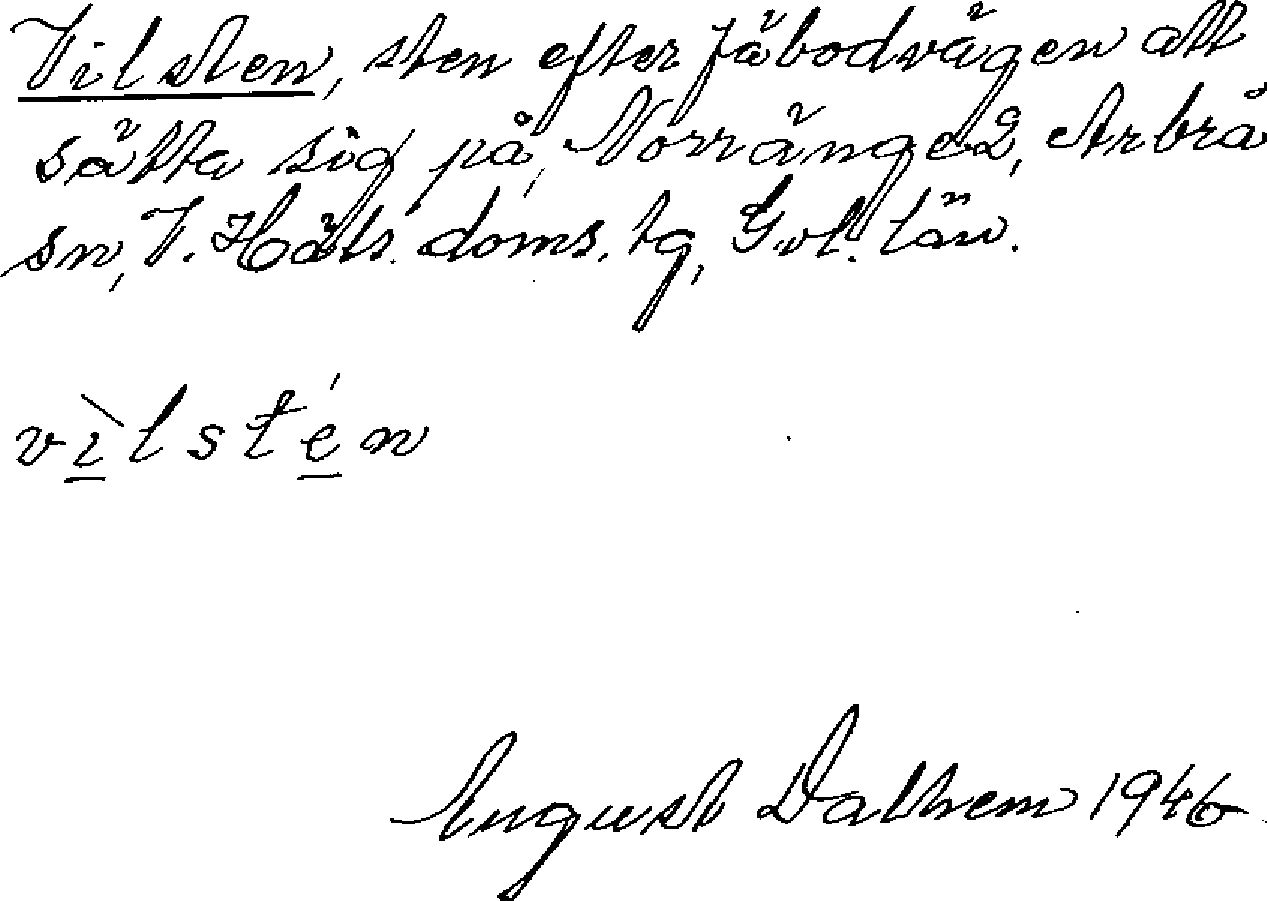 Vilsten, sten efter fäbodvägen att
sätta sig på, Norränge 2, Arbrå
sn, V. Häls. doms. tg, Gvl. län.
vìlstén
August Dalhem 1946